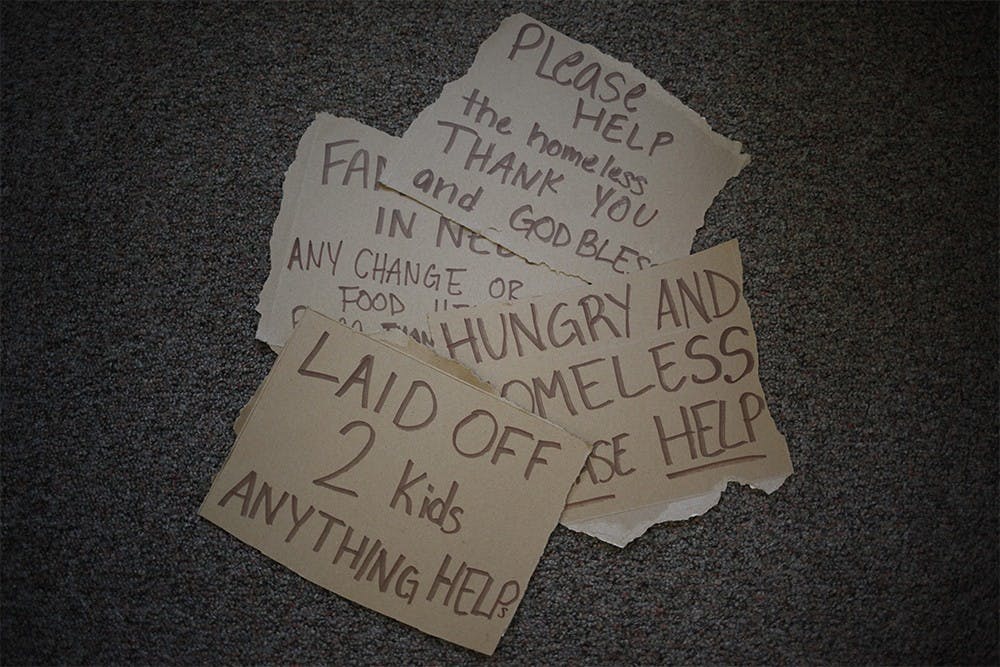 PLease
HELP
the homeless
THANK YOU
and GOD BLES
FA
IN NE
ANY CHANGE OR
FOOD
HUNGRY AND
OMELESS
ASE HELP
LAID OFF
2 Kids
ANYTHING HELPs